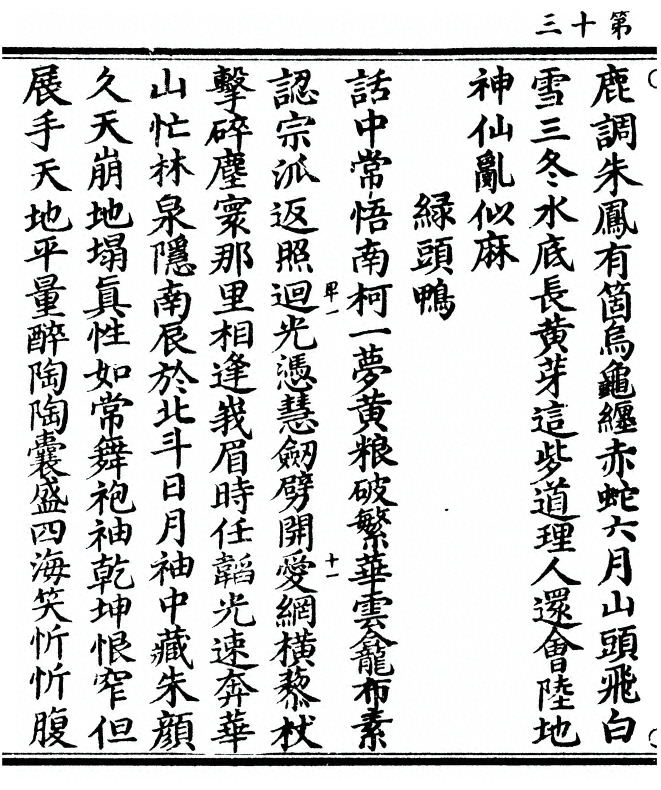 第十三
鹿調朱鳳有箇烏龜纏赤蛇六月山頭飛白
雪三冬水底長黄芽這些道理人還會陸地
神仙亂似麻
緑頭鴨
話中常悟南柯一夢黄粮破繁華雲龕籠布素
認宗派返照迴光憑慧劒劈開愛網橫藜杖
擊碎塵寰那里相逢峩眉時任韜光速奔華
山忙林泉隱南辰於北斗日月袖中藏朱顔
久天崩地塌真性如常舞袍袖乾坤恨窄但
展手天地平量醉陶陶囊盛四海笑忻忻腹
十一